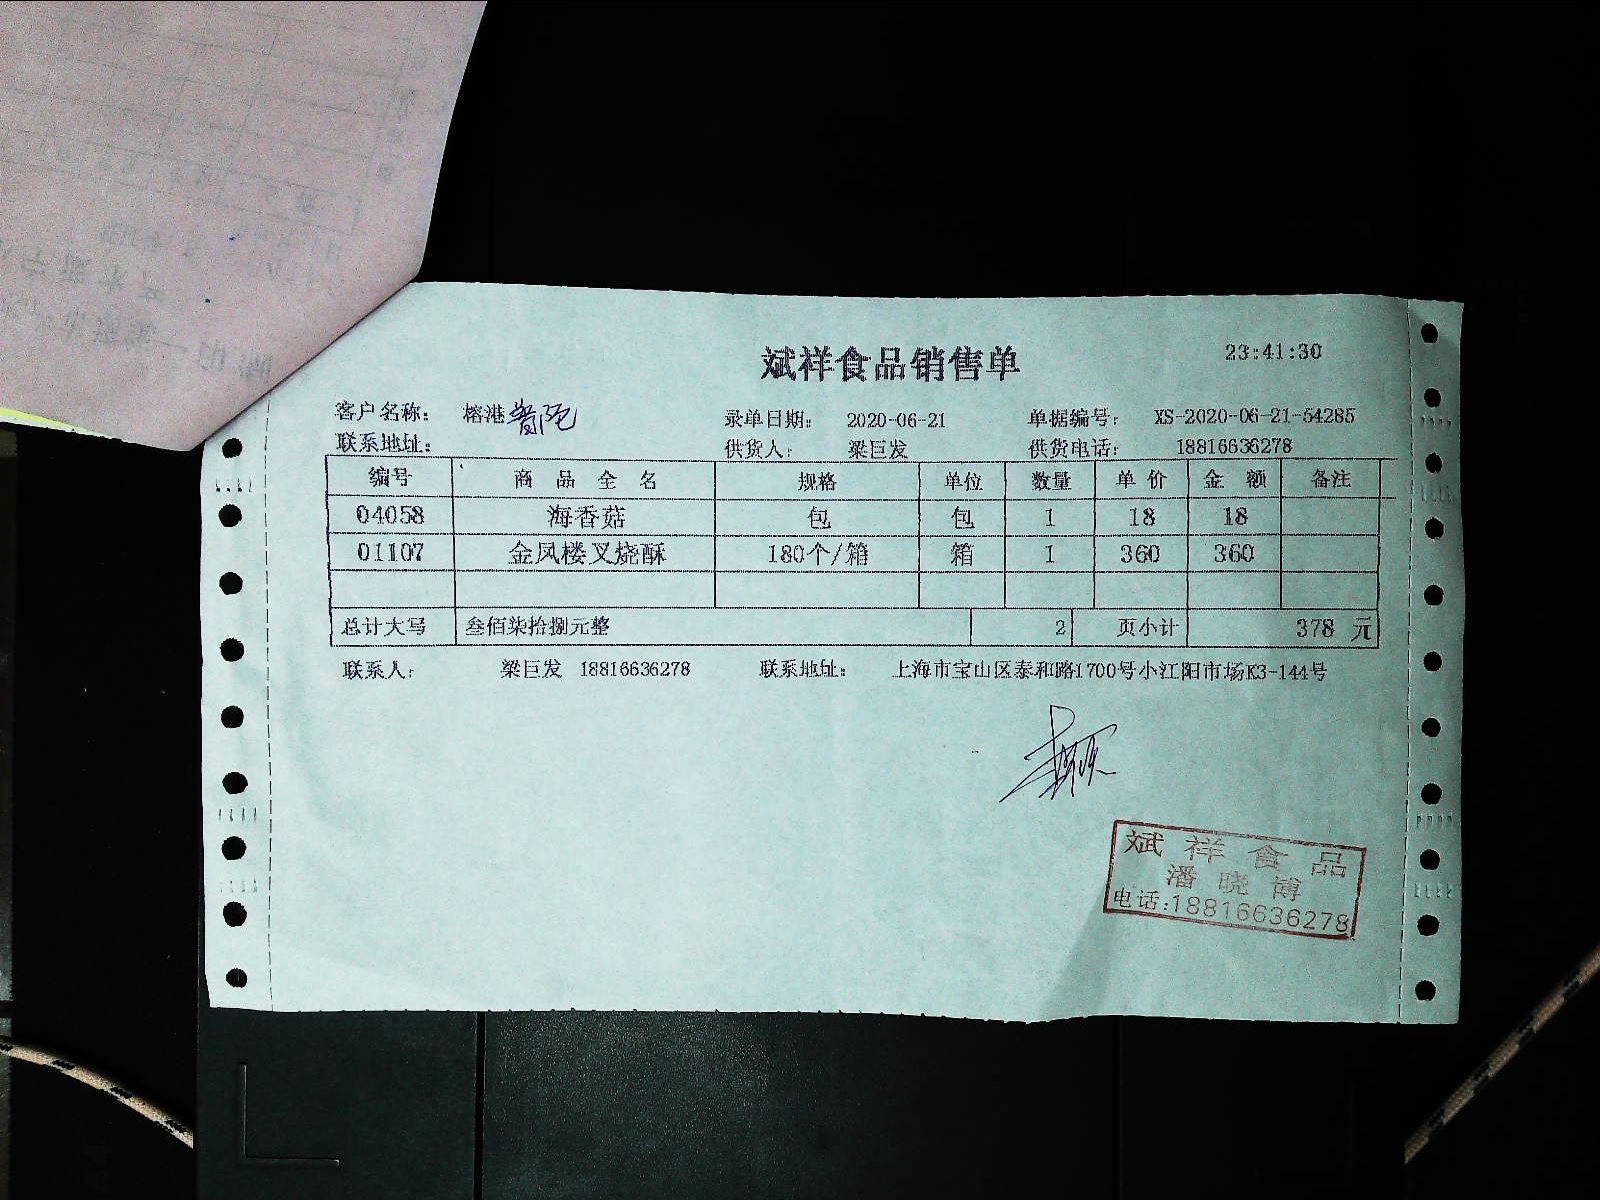 斌祥食品销售单
23:41:30
客户名称: 榕港普陀 录单日期: 2020-06-21 单据编号: XS-2020-06-21-54285
联系地址: 供货人: 梁巨发 供货电话: 18816636278
编号 商品全名 规格 单位 数量 单价 金额 备注
04058 海香菇 包 包 1 18 18
01107 金凤楼叉烧酥 180个/箱 箱 1 360 360
总计大写 叁佰柒拾捌元整 2 页小计 378 元
联系人: 梁巨发 18816636278 联系地址: 上海市宝山区泰和路1700号小江阳市场K3-144号
斌祥食品
潘晓博
电话:18816636278